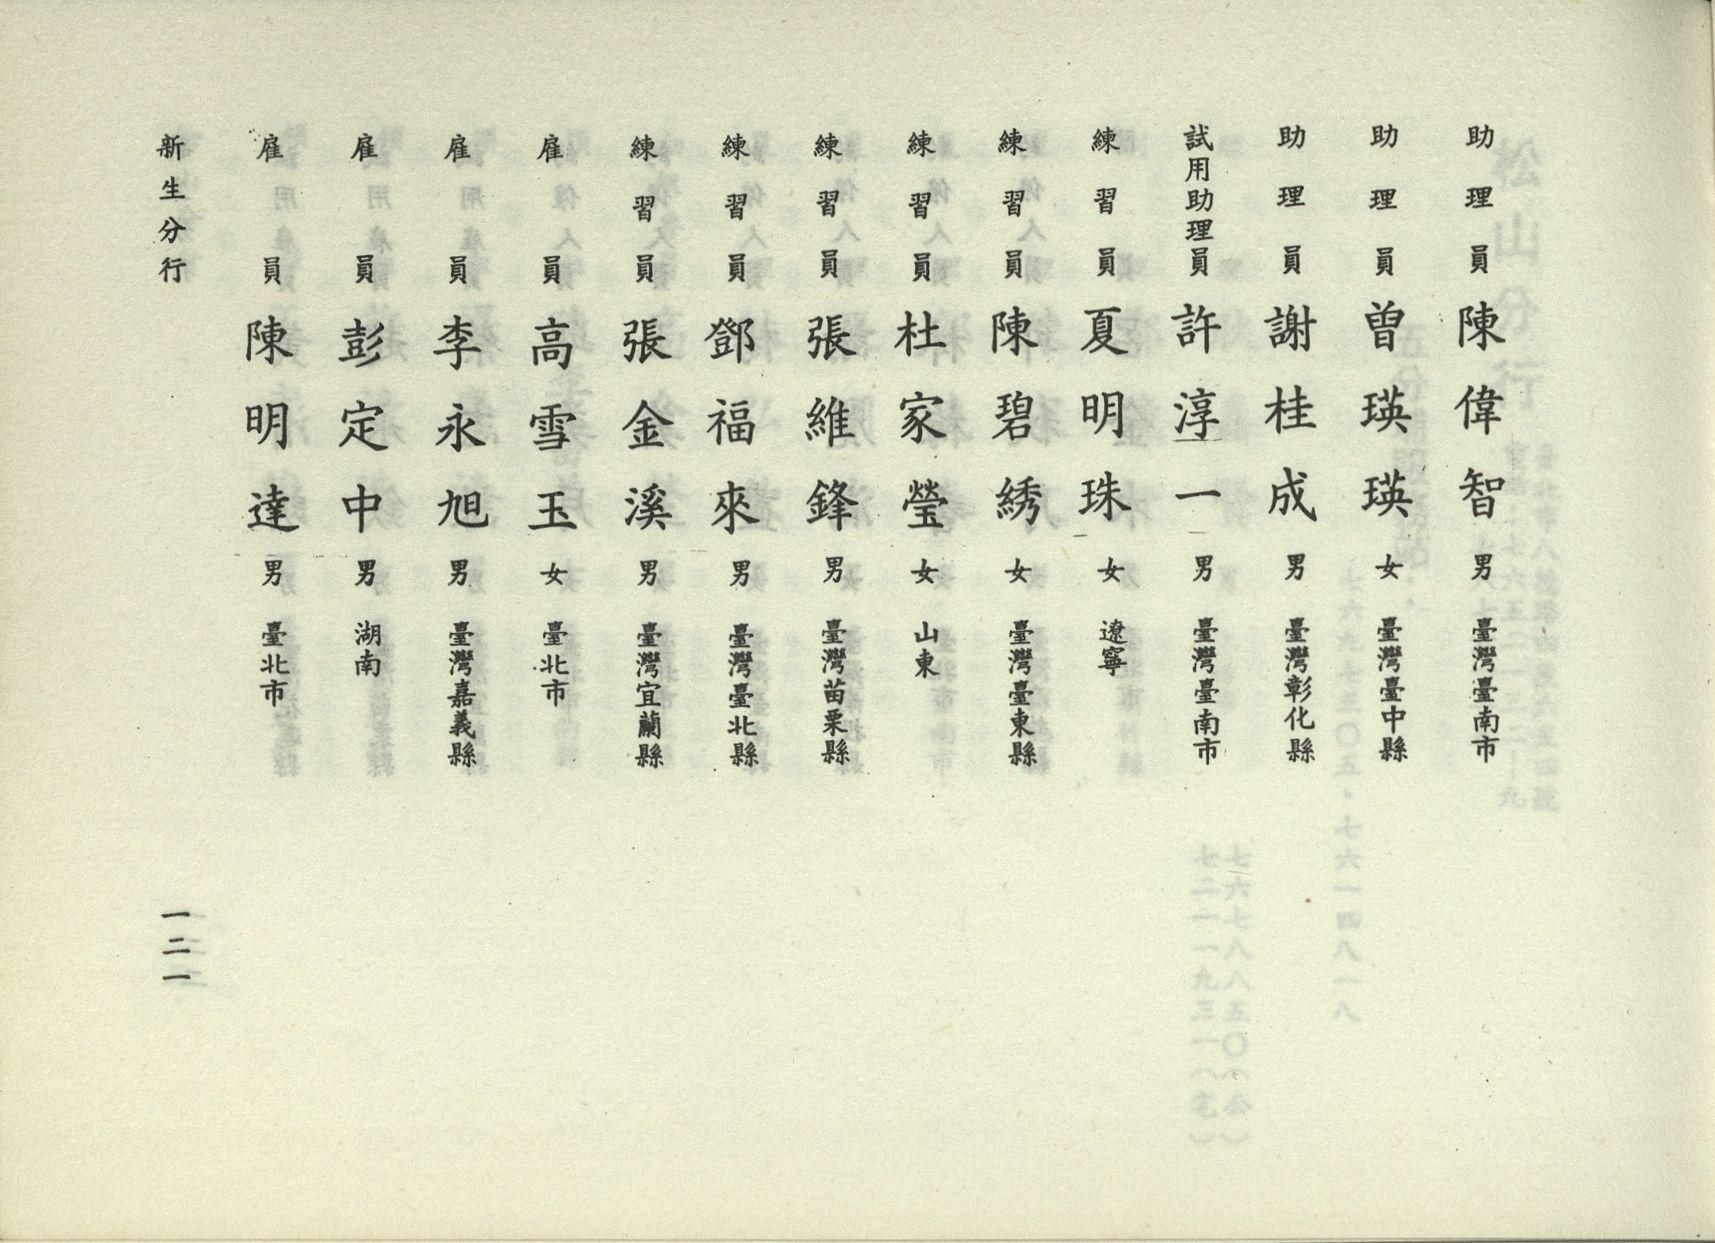 助理員 陳偉智 男 臺灣臺南市
助理員 曾瑛瑛 女 臺灣臺中縣
助理員 謝桂成 男 臺灣彰化縣
試用助理員 許淳一 男 臺灣臺南市
練習員 夏明珠 女 遼寧
練習員 陳碧綉 女 臺灣臺東縣
練習員 杜家瑩 女 山東
練習員 張維鋒 男 臺灣苗栗縣
練習員 鄧福來 男 臺灣臺北縣
練習員 張金溪 男 臺灣宜蘭縣
雇員 高雪玉 女 臺北市
雇員 李永旭 男 臺灣嘉義縣
雇員 彭定中 男 湖南
雇員 陳明達 男 臺北市
新生分行
一二一